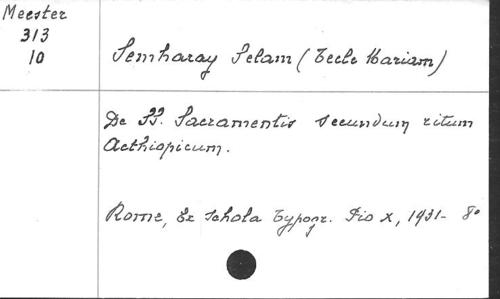 Meester
313
10
Semharay Selam (Tecle Mariam)
De SS. Sacramentis secundum ritum
Aethiopicum.
Rome, Ex Schola Typogr. Pio X, 1931- 8°